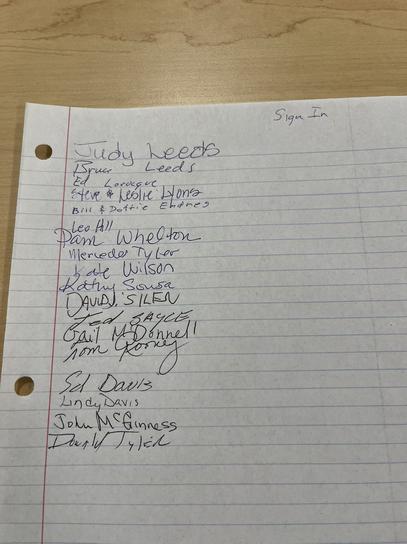 Sign In
Judy Leeds
Bruce Leeds
Ed
Steve & Leslie Lyons
Bill & Dottie
Leo Hill
Pam Whelton
Mercedes Tyler
Kate Wilson
Kathy Sousa
DAVID J. SILEN
Ted SAYCE
Gail McDonnell
Tom Rooney
Ed Davis
Lindy Davis
John McGinness
Donald Tyler